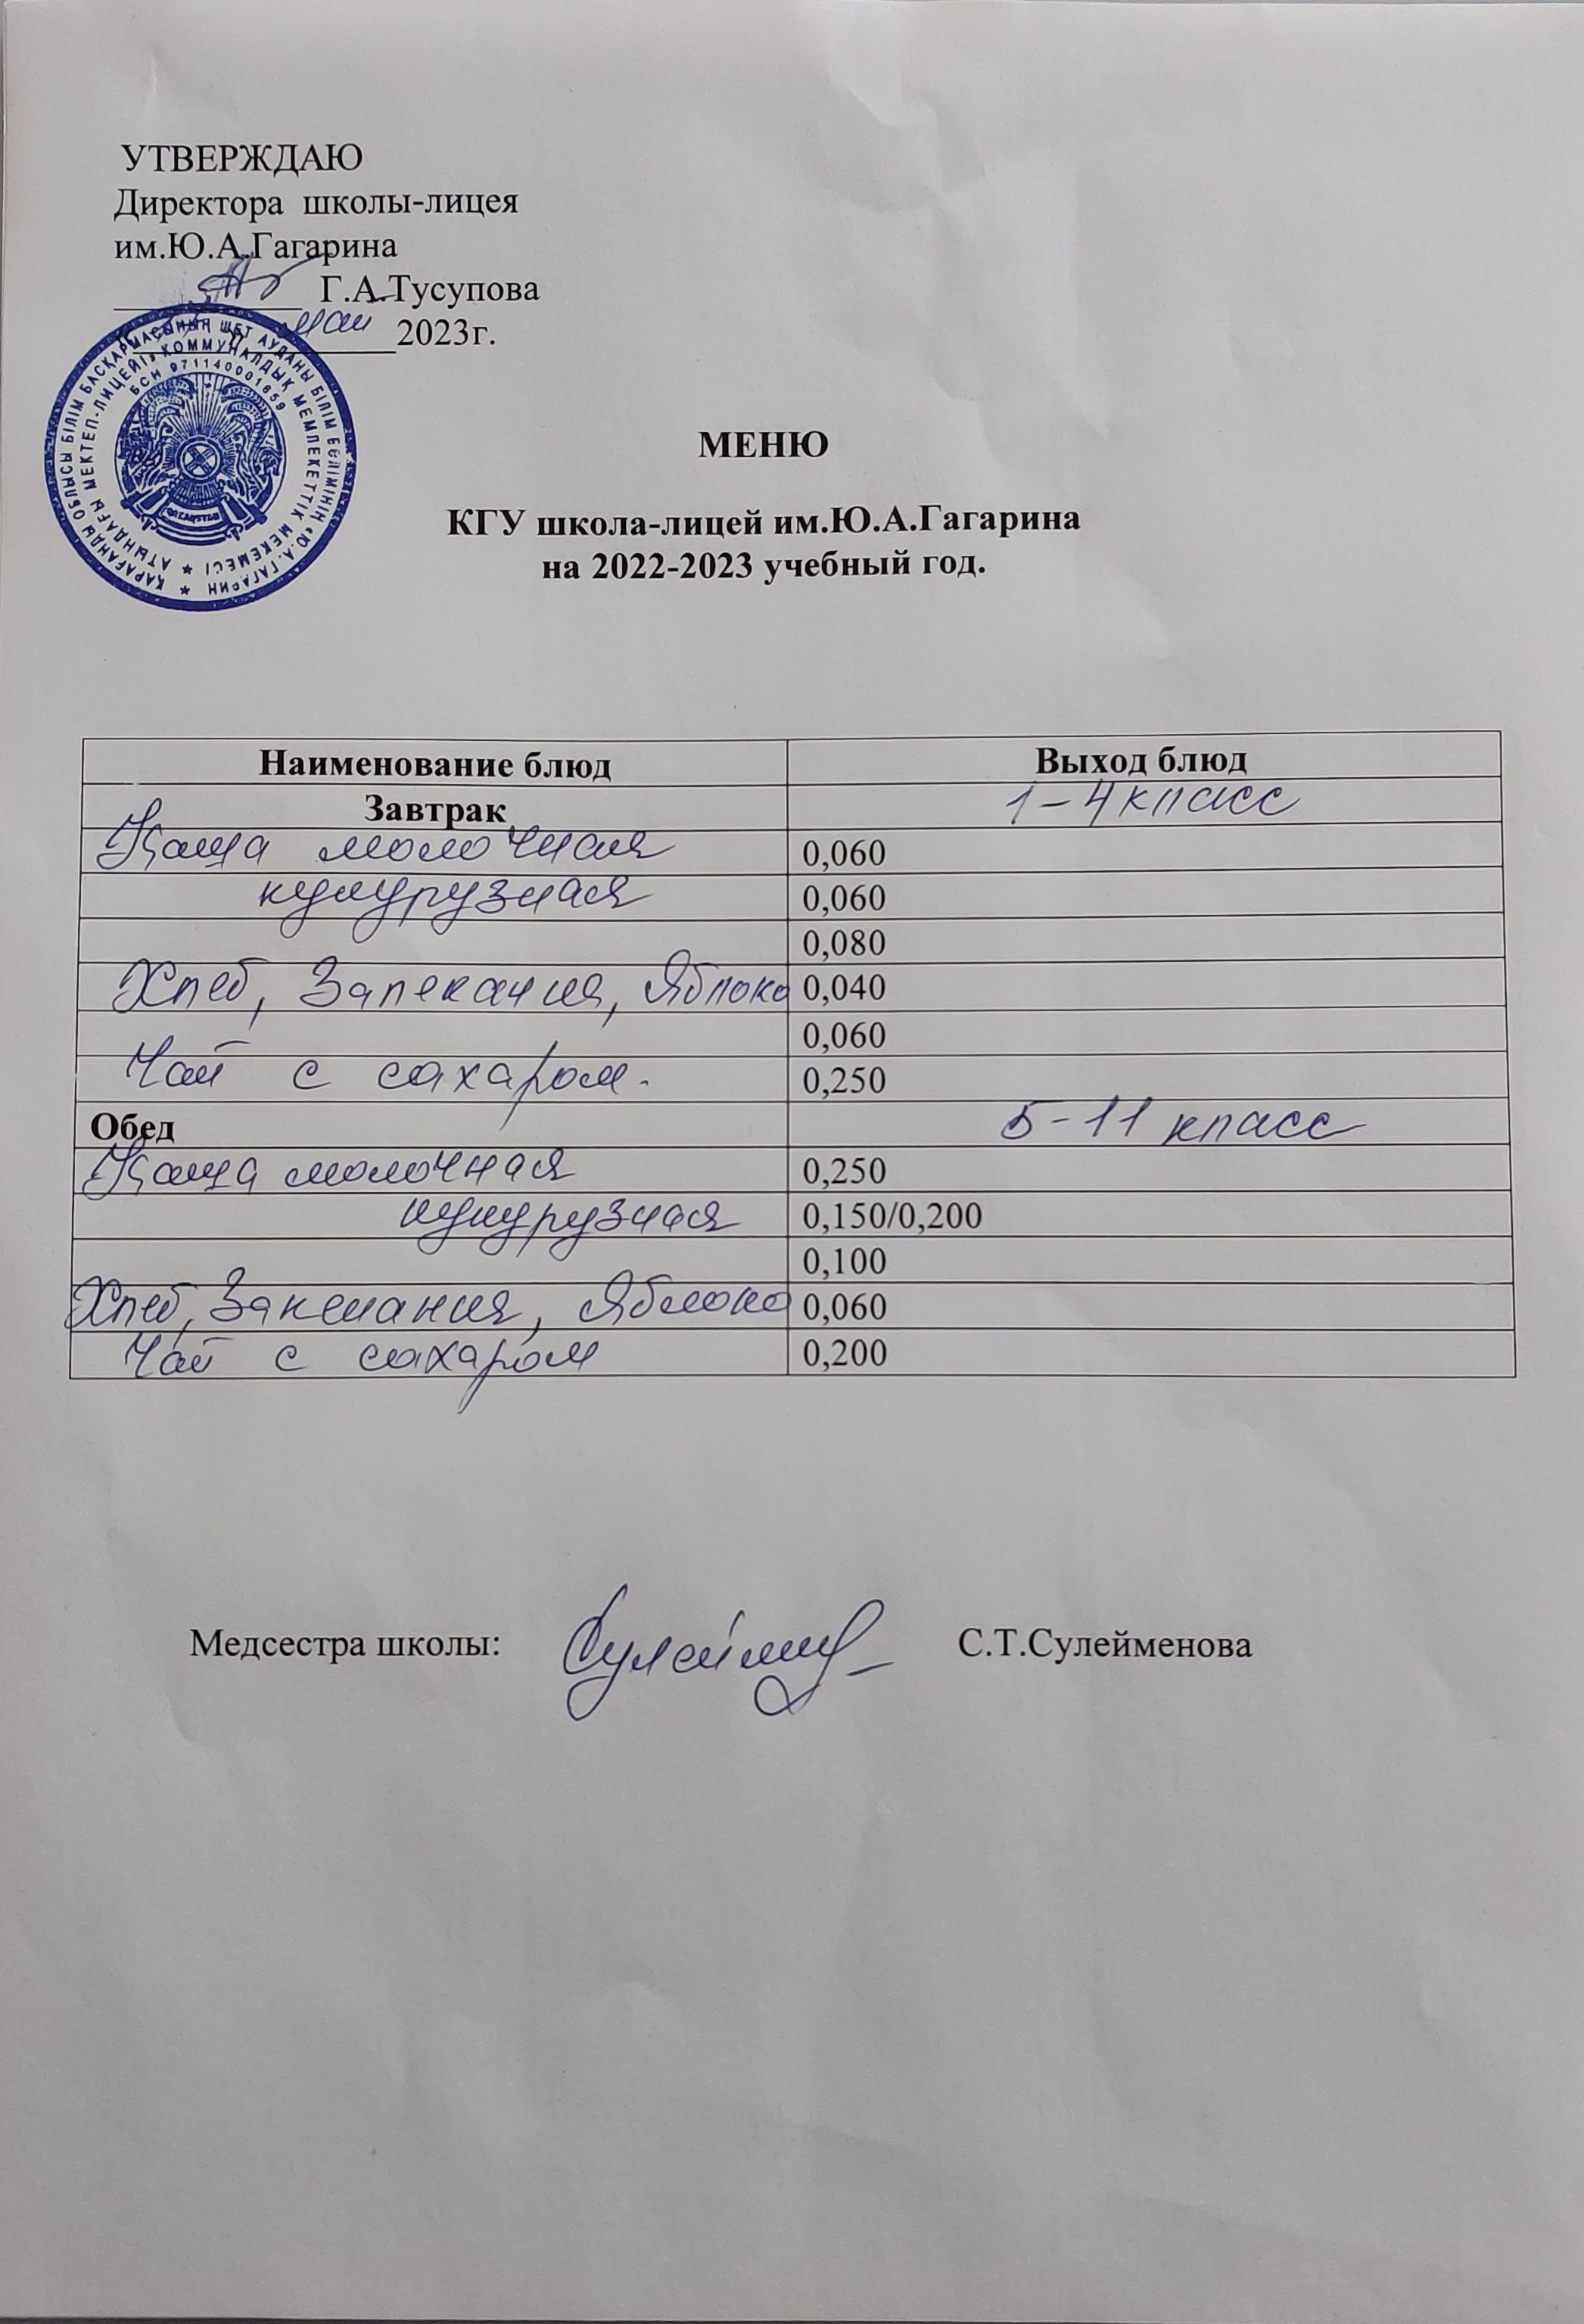 УТВЕРЖДАЮ
Директора школы-лицея
им.Ю.А.Гагарина
Г.А.Тусупова
май 2023г.
ҚАРАҒАНДЫ ОБЛЫСЫ БІЛІМ БАСҚАРМАСЫНЫҢ ШЕТ АУДАНЫ БІЛІМ БӨЛІМІНІҢ «Ю.А. ГАГАРИН
АТЫНДАҒЫ МЕКТЕП-ЛИЦЕЙІ» КОММУНАЛДЫҚ МЕМЛЕКЕТТІК МЕКЕМЕСІ
БСН 971140001659
МЕНЮ
КГУ школа-лицей им.Ю.А.Гагарина
на 2022-2023 учебный год.
Наименование блюд Выход блюд
Завтрак 1-4 класс
Каша молочная 0,060
кукурузная 0,060
0,080
Хлеб, Запекания, Яблоко 0,040
0,060
Чай с сахаром. 0,250
Обед 5-11 класс
Каша молочная 0,250
кукурузная 0,150/0,200
0,100
Хлеб, Яблоко 0,060
Чай с сахаром 0,200
Медсестра школы: С.Т.Сулейменова